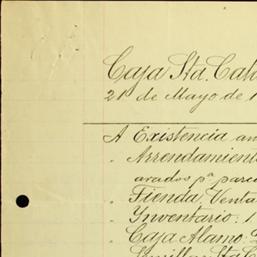 Caja Sta. Cata
21 de Mayo de 1
A Existencia an
" Arrendamient
arados pa parce
" Tienda, Venta
" Inventario. 1
" Caja Alamo.
Semillas Sta C